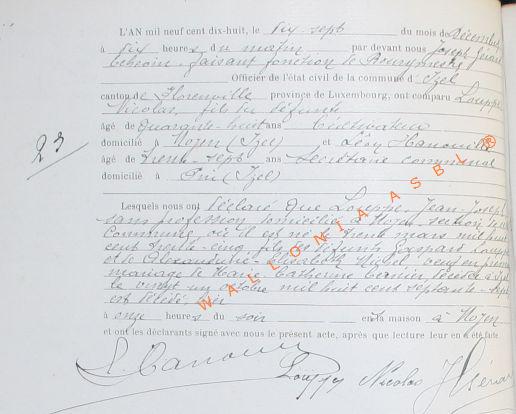 L'AN mil neuf cent dix-huit, le dix-sept du mois de Décembre
à dix heures du matin par devant nous Joseph Gérard
faisant fonction de Bourgmestre
Officier de l'état civil de la commune d'Izel
canton de Florenville province de Luxembourg, ont comparu Louppe
Nicolas, fils du défunt
âgé de Quarante-huit ans Cultivateur
domicilié à Moyen (Izel) et Léon Hanouille
23
âgé de trente-sept ans Secrétaire communal
domicilié à Pin (Izel)
Lesquels nous ont déclaré que Louppe, Jean-Joseph
sans profession domicilié à Moyen section de cette
Commune, où il est né le trente mars mil huit
cent trente-cinq, fils de défunts Gaspard Louppe
et de Alexandrine-Elisabeth veuf en
mariage de Marie-Catherine décédée à Izel
le vingt un octobre mil huit cent septante-sept
est décédé hier
à onze heures du soir en la maison à Moyen
et ont les déclarants signé avec nous le présent acte, après que lecture leur en a été faite.
L. Hanouille Louppe Nicolas J Gérard
WALLONIA ASBL ®